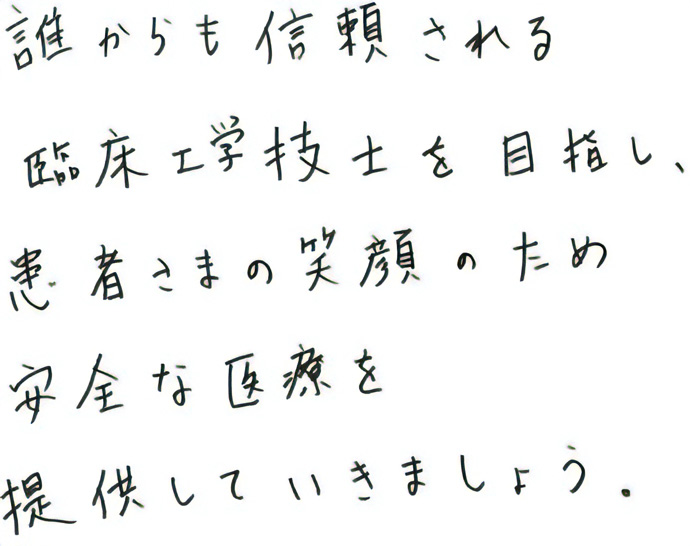 誰からも信頼される
臨床工学技士を目指し、
患者さまの笑顔のため
安全な医療を
提供していきましょう。